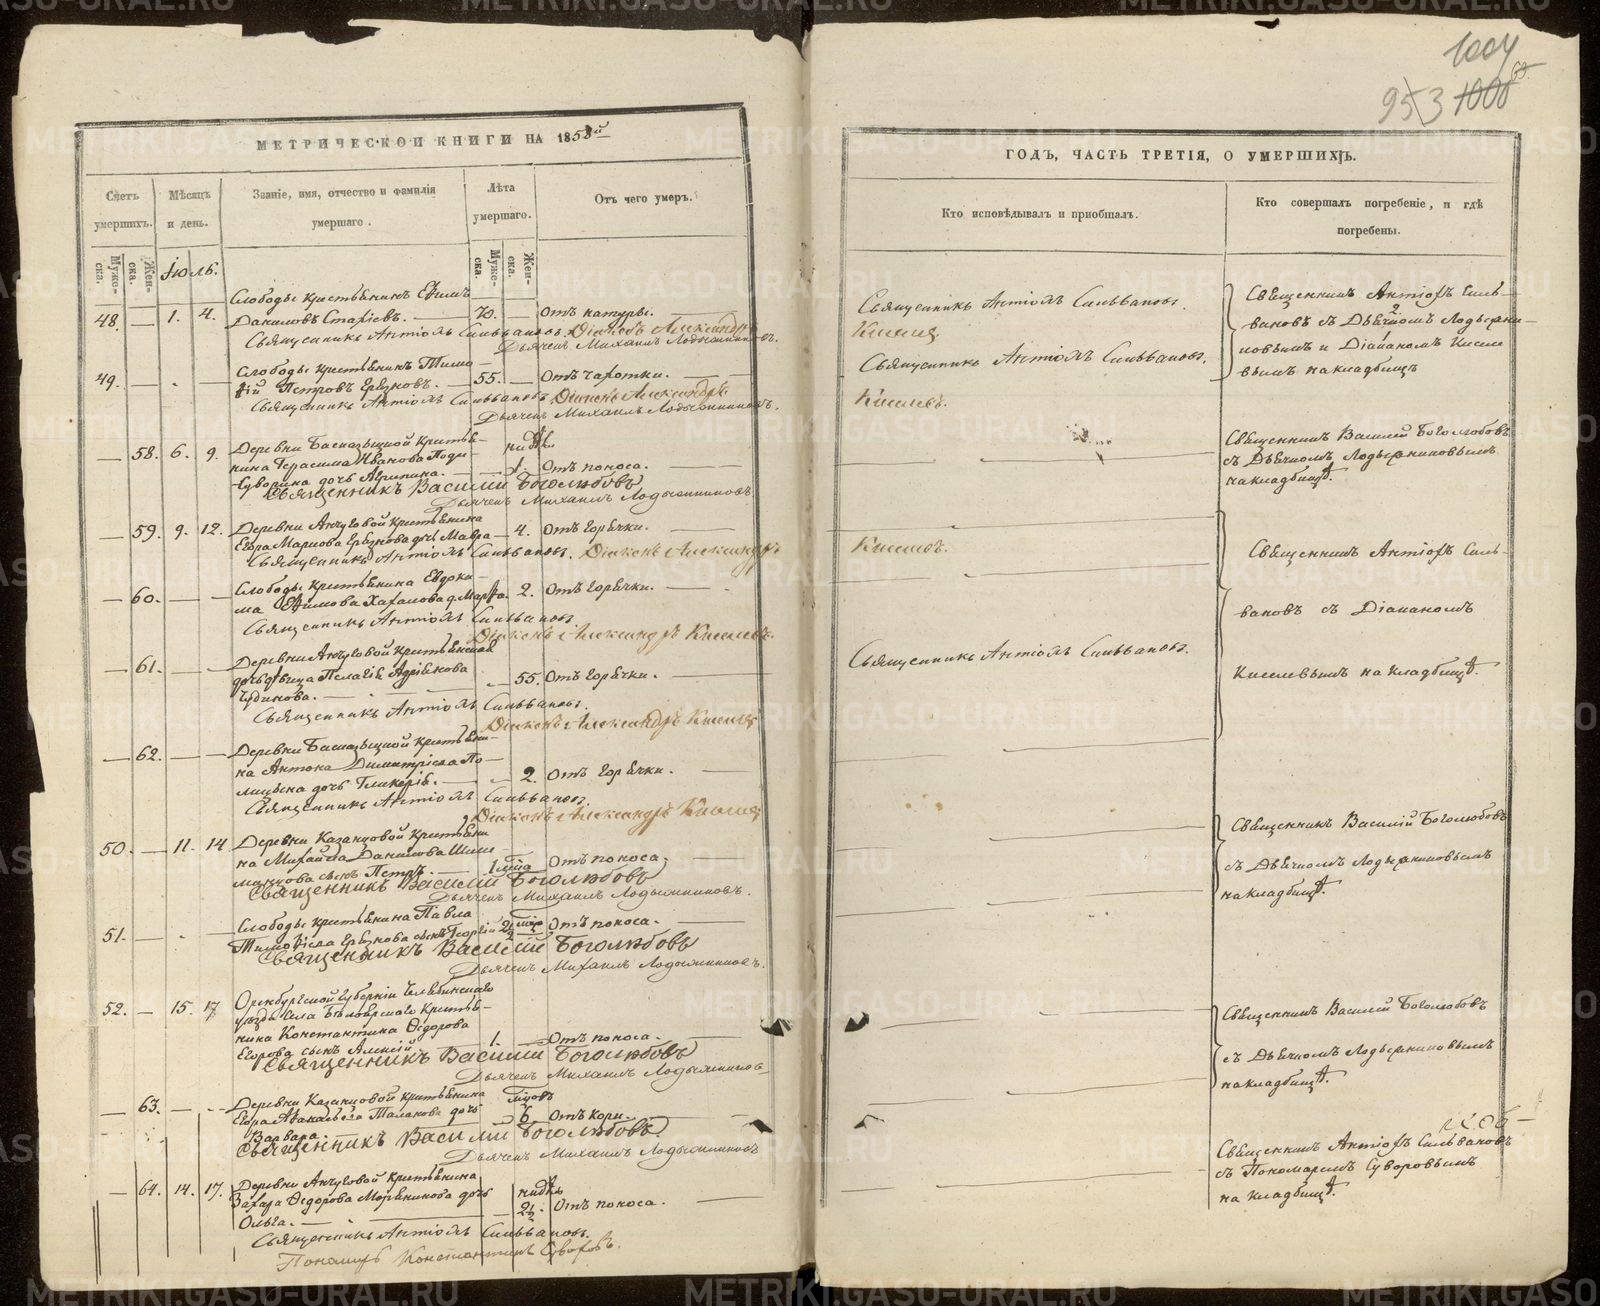 1004
953 1000
МЕТРИЧЕСКОЙ КНИГИ НА 1858й
Счетъ умершихъ.
Мѣсяцъ и день.
Званіе, имя, отчество и фамилія умершаго.
Лѣта умершаго.
Отъ чего умеръ.
Мужеска.
Женска.
Мужеска.
Женска.
Іюль.
Слободы крестьянинъ Евѳимъ
48. — 1. 4. Даниловъ — 70. — Отъ натуры.
Священникъ Антіохъ Сильвановъ. Діаконъ Александръ
Дьячекъ Михаилъ Лодыжниковъ.
Слободы крестьянинъ Тимо-
49. — . — ѳій Петровъ — 55. — Отъ чахотки.
Священникъ Антіохъ Сильвановъ Діаконъ Александръ
Дьячекъ Михаилъ Лодыжниковъ.
— 58. 6. 9. Деревни крестья-
нина Герасима Иванова
дочь Агрипина. — недѣль 1. Отъ поноса.
Священникъ Василій Боголюбовъ
Дьячекъ Михаилъ Лодыжниковъ
— 59. 9. 12. Деревни Анчуговой крестьянина
Егора дочь Мавра — 4. Отъ горячки.
Священникъ Антіохъ Сильвановъ. Діаконъ Александръ
— 60. — — Слободы крестьянина Евдоки-
ма Евѳимова д. Марѳа. 2. Отъ горячки.
Священникъ Антіохъ Сильвановъ.
Діаконъ Александръ Киселевъ.
— 61. — — Деревни Анчуговой крестьянская
дочь дѣвица Пелагія Адріянова
Чудинова. — 55. Отъ горячки.
Священникъ Антіохъ Сильвановъ.
Діаконъ Александръ Киселевъ
— 62. — — Деревни крестьяни-
на Антона Димитріева По-
дочь Гликерія. — 2. Отъ горячки.
Священникъ Антіохъ Сильвановъ.
Діаконъ Александръ Киселевъ
50. — 11. 14 Деревни Казанцовой крестьяни-
на Михаила Данилова
сынъ Петръ. — 1 Отъ поноса.
Священникъ Василій Боголюбовъ
Дьячекъ Михаилъ Лодыжниковъ.
51. — . . Слободы крестьянина Павла
Тимоѳіева сынъ Георгій 2 Отъ поноса.
Священникъ Василій Боголюбовъ
Дьячекъ Михаилъ Лодыжниковъ.
52. — 15. 17 Оренбургской Губерніи Челябинскаго
уѣзда села Бѣлоярскаго крестья-
нина Константина Ѳедорова
Егорова сынъ Алексій 1. — Отъ поноса.
Священникъ Василій Боголюбовъ
Дьячекъ Михаилъ Лодыжниковъ
— 63. — — Деревни Казанцовой крестьянина
Егора Аѳанасьева дочь
Варвара. — 6 Отъ кори.
Священникъ Василій Боголюбовъ
Дьячекъ Михаилъ Лодыжниковъ
— 64. 14. 17. Деревни Анчуговой крестьянина
Захара Ѳедорова дочь
Ольга. — недѣль 2½. Отъ поноса.
Священникъ Антіохъ Сильвановъ.
Пономарь Константинъ Суворовъ.
ГОДЪ, ЧАСТЬ ТРЕТІЯ, О УМЕРШИХЪ.
Кто исповѣдывалъ и пріобщалъ.
Кто совершалъ погребеніе, и гдѣ погребены.
Священникъ Антіохъ Сильвановъ.
Киселевъ
Священникъ Антіохъ Сильвановъ.
Киселевъ.
Священникъ Антіохъ Силь-
вановъ съ Дьячкомъ Лодыжни-
ковымъ и Діакономъ Киселе
вымъ на кладбищѣ
Священникъ Василій Боголюбовъ
съ Дьячкомъ Лодыжниковымъ
на кладбищѣ.
Киселевъ.
Священникъ Антіохъ Силь-
вановъ съ Діакономъ
Киселевымъ на кладбищѣ.
Священникъ Антіохъ Сильвановъ.
Священникъ Василій Боголюбовъ
съ Дьячкомъ Лодыжниковымъ
на кладбищѣ.
Священникъ Василій Боголюбовъ
съ Дьячкомъ Лодыжниковымъ
на кладбищѣ.
Священникъ Антіохъ Сильвановъ
съ Пономаремъ Суворовымъ
на кладбищѣ.
METRIKI.GASO-URAL.RU